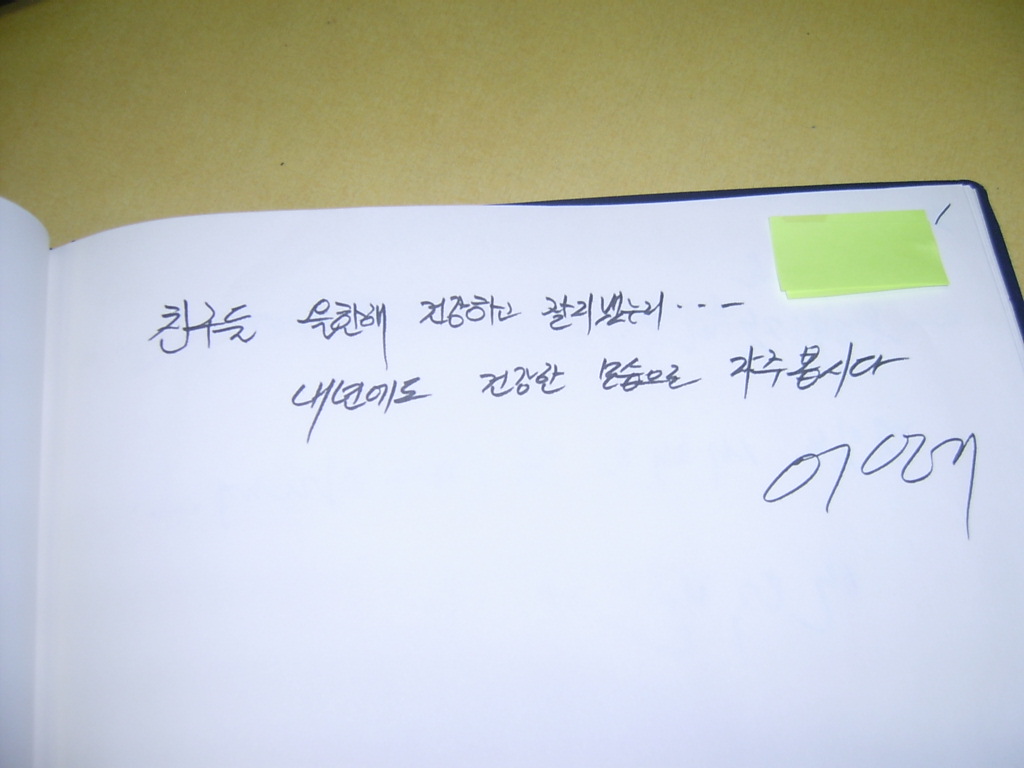 친구들 올한해 건강하고 잘지냈는지...-
내년에도 건강한 모습으로 자주봅시다